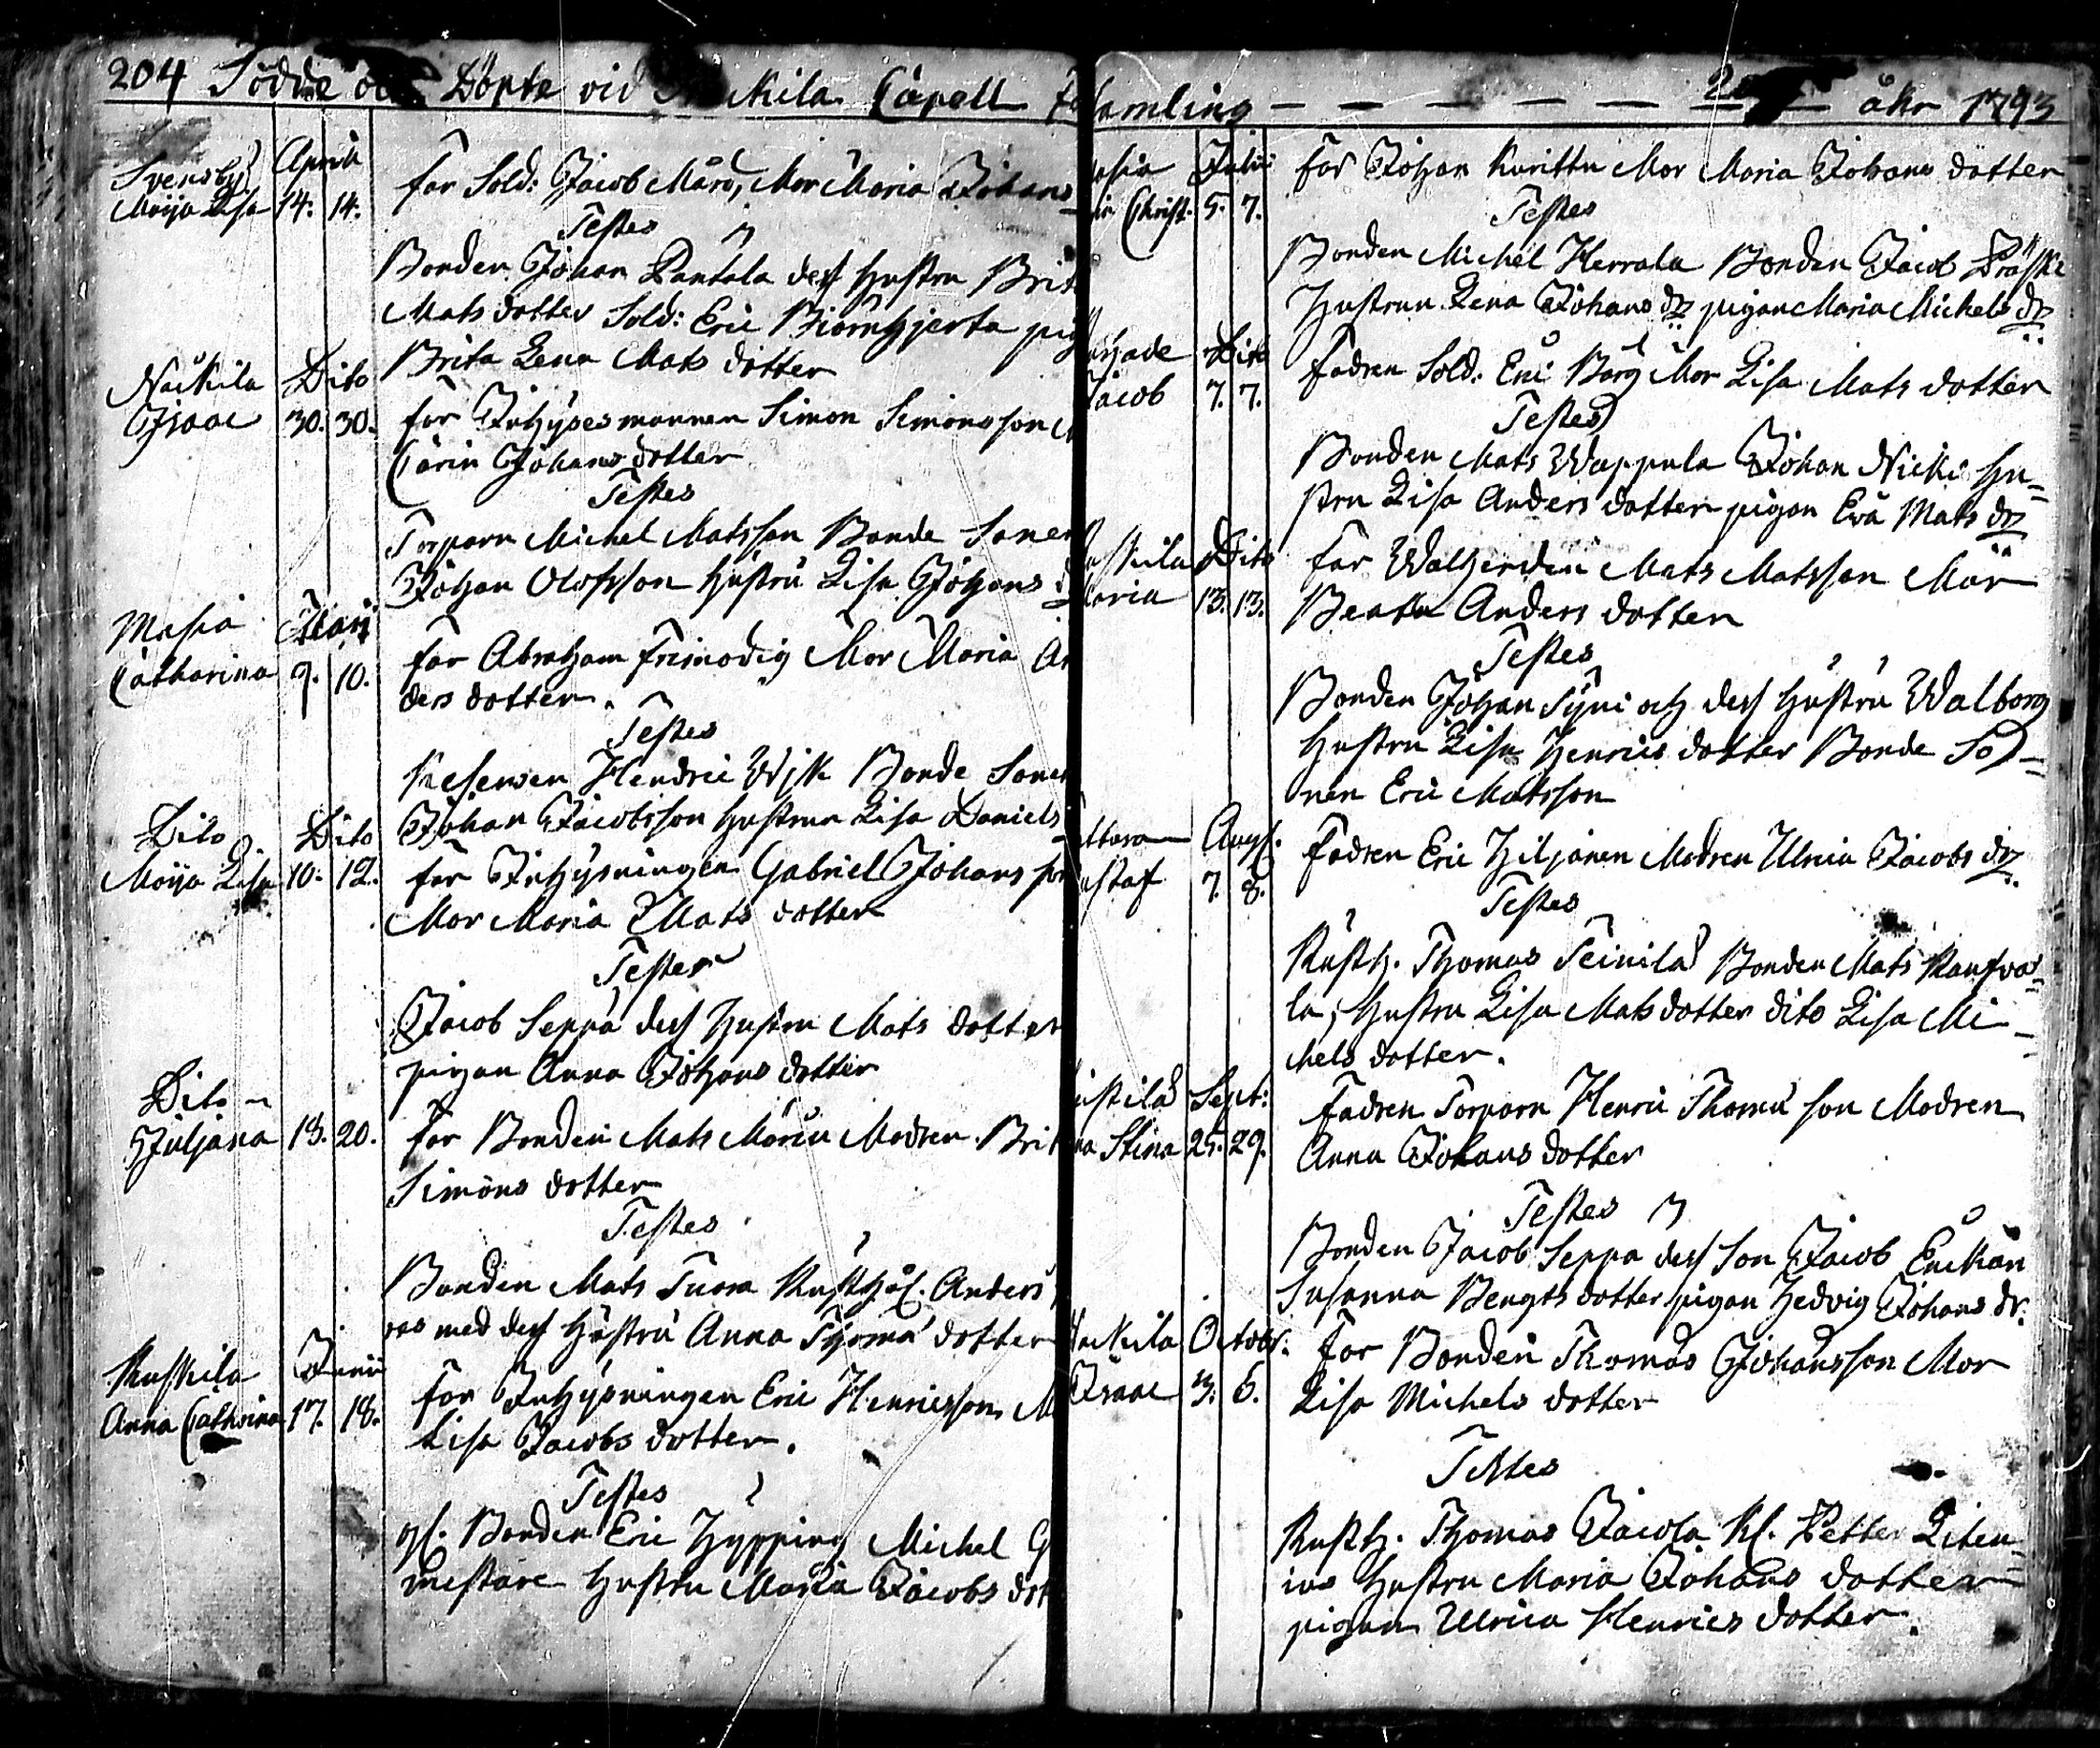 204 Födde Döpte vid Capell
Svensby Aprill
Maija Lisa 14. 14. Far Sold: Jacob Mård, Mor Maria Johans
Testes
Bonden Johan Pantala dess Hustru Brit
Mats dotter Sold: Eric Biörnhjerta pig
Brita Lena Mats dotter
Näckila Dito
Isaac 30. 30. Far Inhyses mannen Simon Simonsson
Carin Johans dotter
Testes
Torparn Michel Matsson Bonde Sonen
Johan Olofsson Hustru Lisa Johans
Masia Maij
Catharina 9. 10. Far Abraham Frimodig Mor Maria An
ders dotter.
Testes
Hendric Wijk Bonde Sonen
Johan Jacobsson Hustrun Lisa Daniels
Dito Dito
Maija Lisa 10. 12. Far Inhysningen Gabriel Johans son
Mor Maria Mats dotter
Testes
Jacob Seppä dess Hustru Mats dotter
pigan Anna Johans dotter
Dito
Juliana 18. 20. Far Bonden Mats Modren Brit
Simons dotter
Testes
Bonden Mats Tuora Rusthål. Anders
ros med dess Hustru Anna Thoma dotter
Ruskila Junii
Anna Cathrina 17. 18. Far Inhysningen Eric Henricsson M
Lisa Jacobs dotter.
Testes
gl. Bonden Eric Hypping Michel G
mestare Hustru Maria Jacobs dot
samling — — — — — — åhr 1793
asia Julii
ia Christ. 5. 7. Far Johan Kurittu Mor Maria Johans dotter
Testes
Bonden Michel Herrala Bonden Jacob Präski
Hustrun Lena Johans dr pigan Maria Michels dr
Dito
Jacob 7. 7. Fadren Sold: Eric Borg Mor Lisa Mats dotter
Testes
Bonden Mats Wappula Johan Nicki Hu=
stru Lisa Anders dotter pigan Eva Mats dr
uskila Dito
Maria 13. 13. Far Mats Matsson Mor
Beata Anders dotter
Testes
Bonden Johan Syni och dess Hustru Walborg
Hustru Lisa Henrics dotter Bonde So=
nen Eric Matsson
Augs.
ustaf 7. 8. Fadren Eric Hiljanen Modren Ulrica Jacobs dr
Testes
Rusth. Thomas Teinilä Bonden Mats
la, Hustru Lisa Mats dotter dito Lisa Mi=
chels dotter.
Sept:
na Stina 25. 29. Fadren Torparn Henric Thoma son Modren
Anna Johans dotter
Testes
Bonden Jacob Seppä dess Son Jacob Enckan
Susanna Bengts dotter pigan Hedvig Johans dr.
äckila Octobr.
Isaac 3. 6. Far Bonden Thomas Johansson Mor
Lisa Michels dotter
Testes
Rusth. Thomas Jacola Kl. Petter Liten=
ius Hustru Maria Johans dotter
pigan Ulrica Henrics dotter.